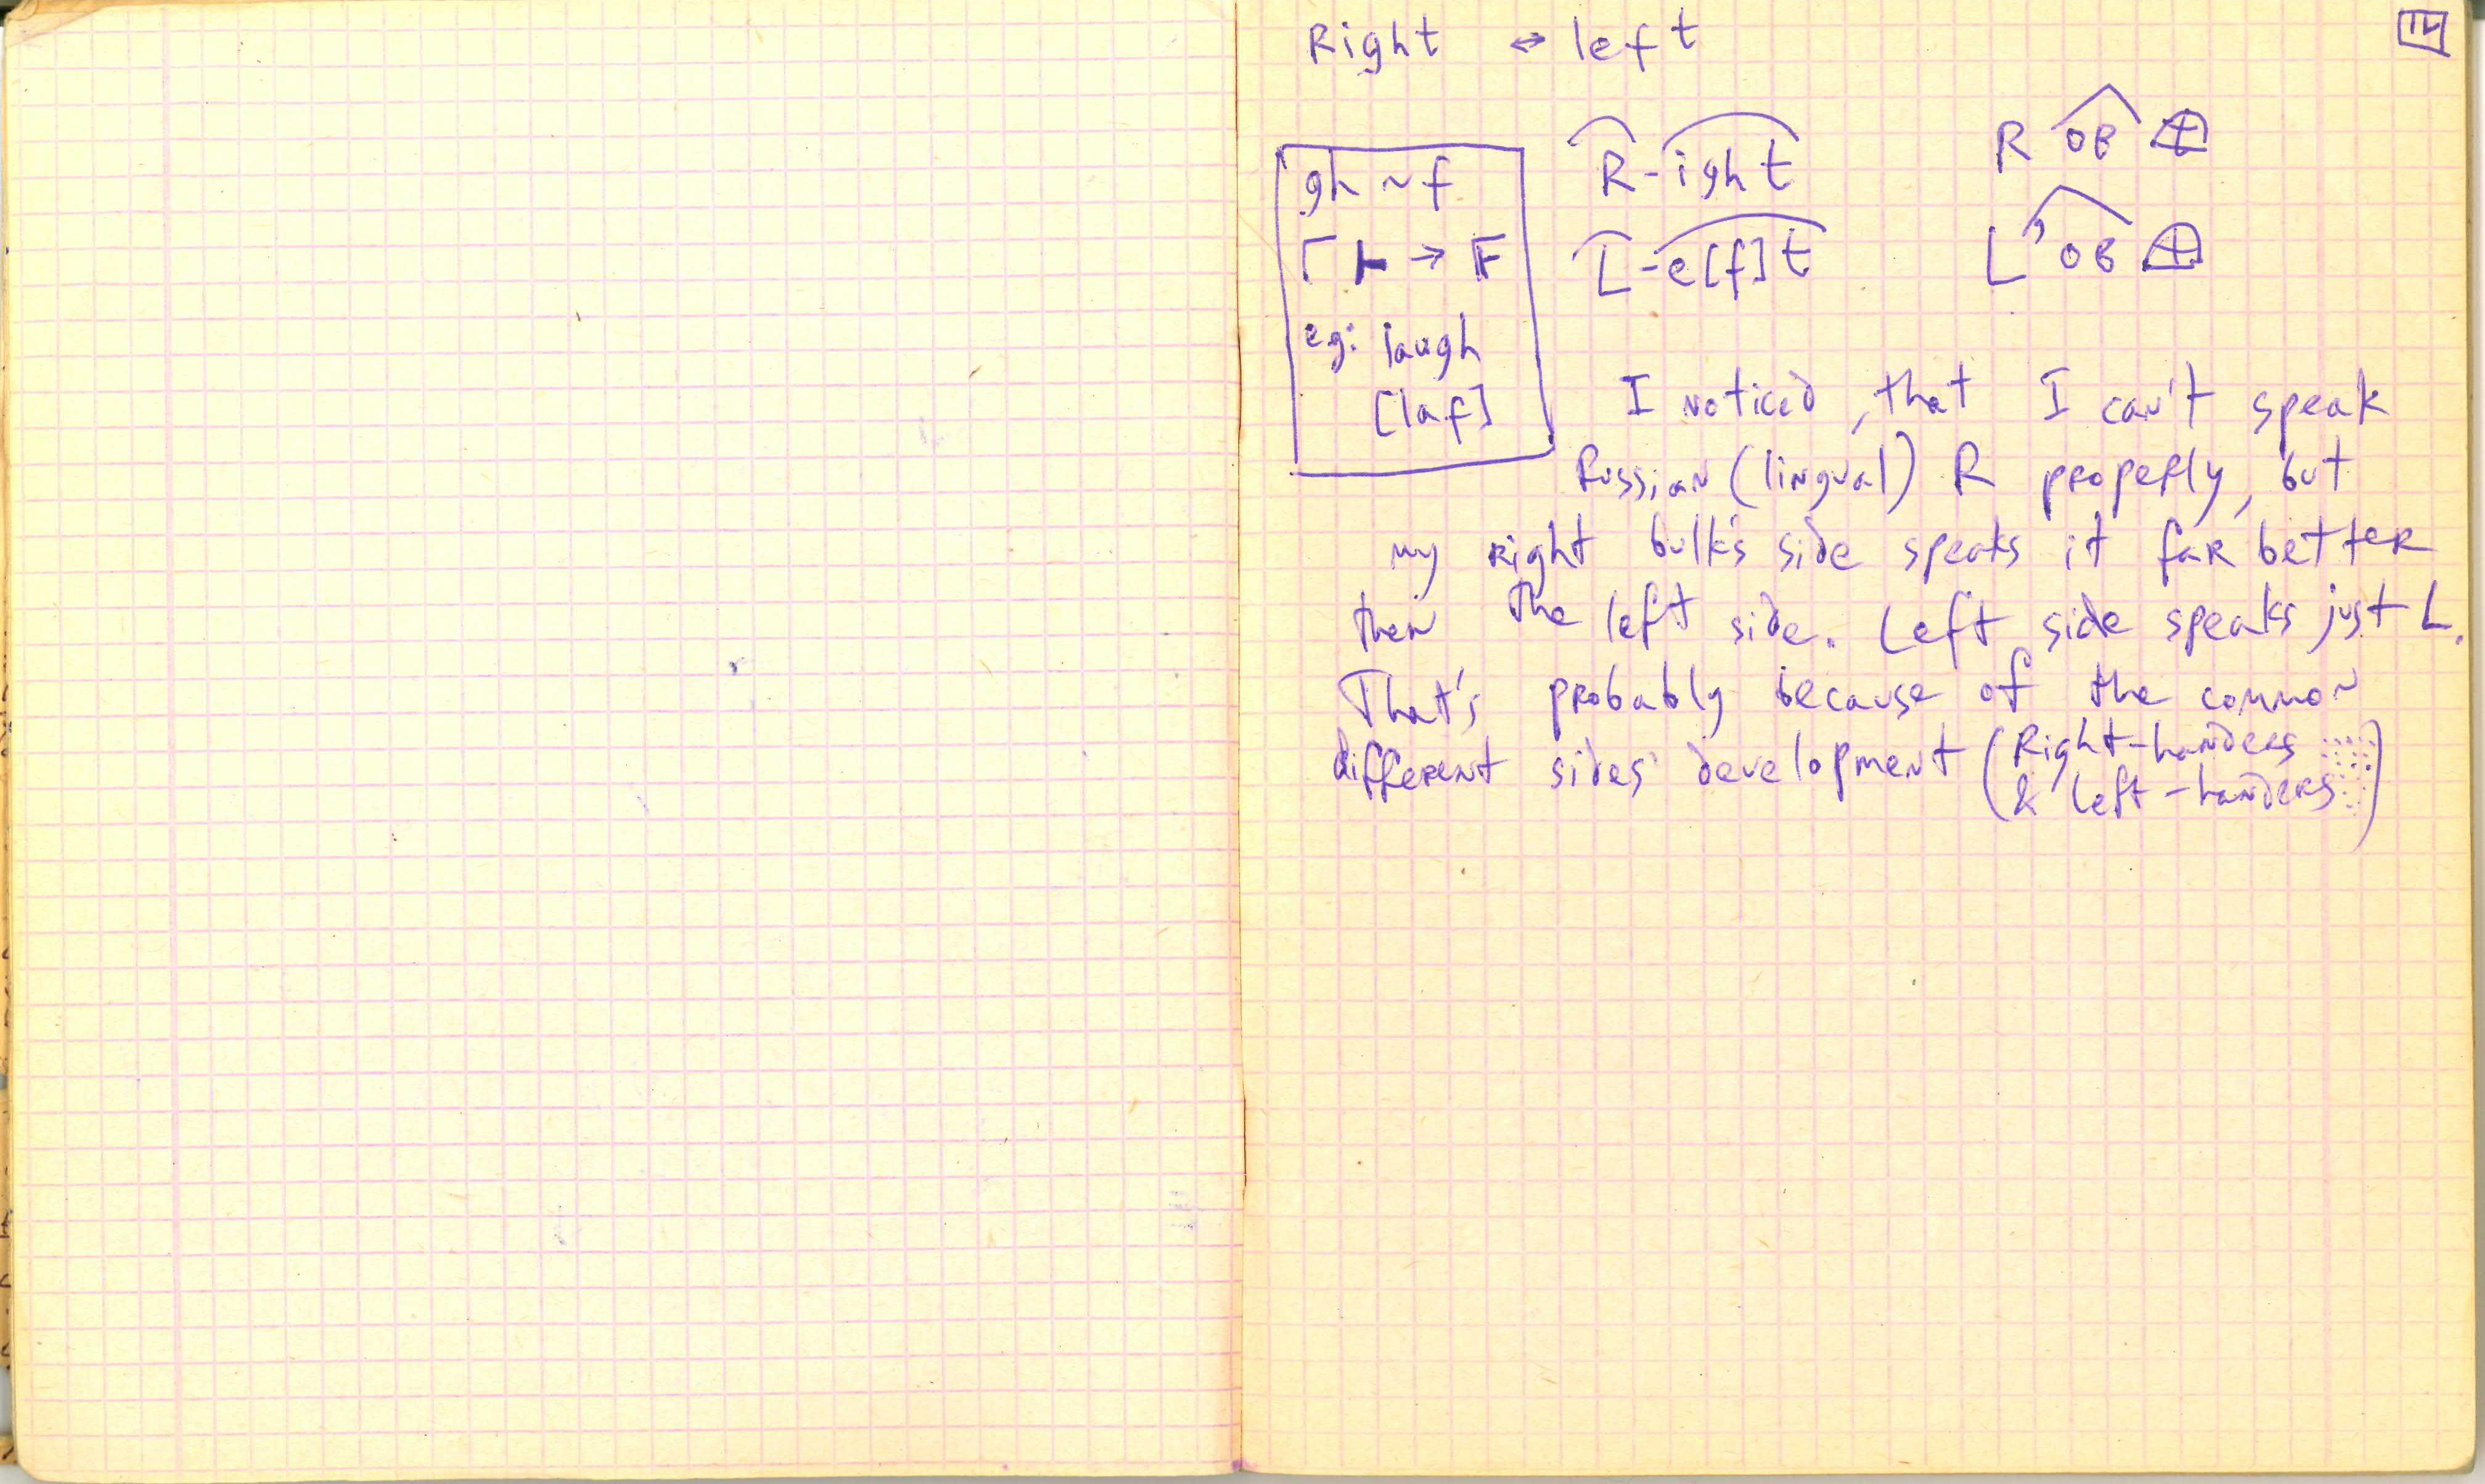 Right ↔ left
R-ight
L-e[f]t
R ов
L'ов
gh ~ f
Г Ͱ → F
eg: laugh
[laf]
I noticed, that I can't speak
Russian (lingual) R properly, but
my right bulk's side speaks it far better
then the left side. Left side speaks just L.
That's probably because of the common
different sides' development (Right-handers
& left-handers)